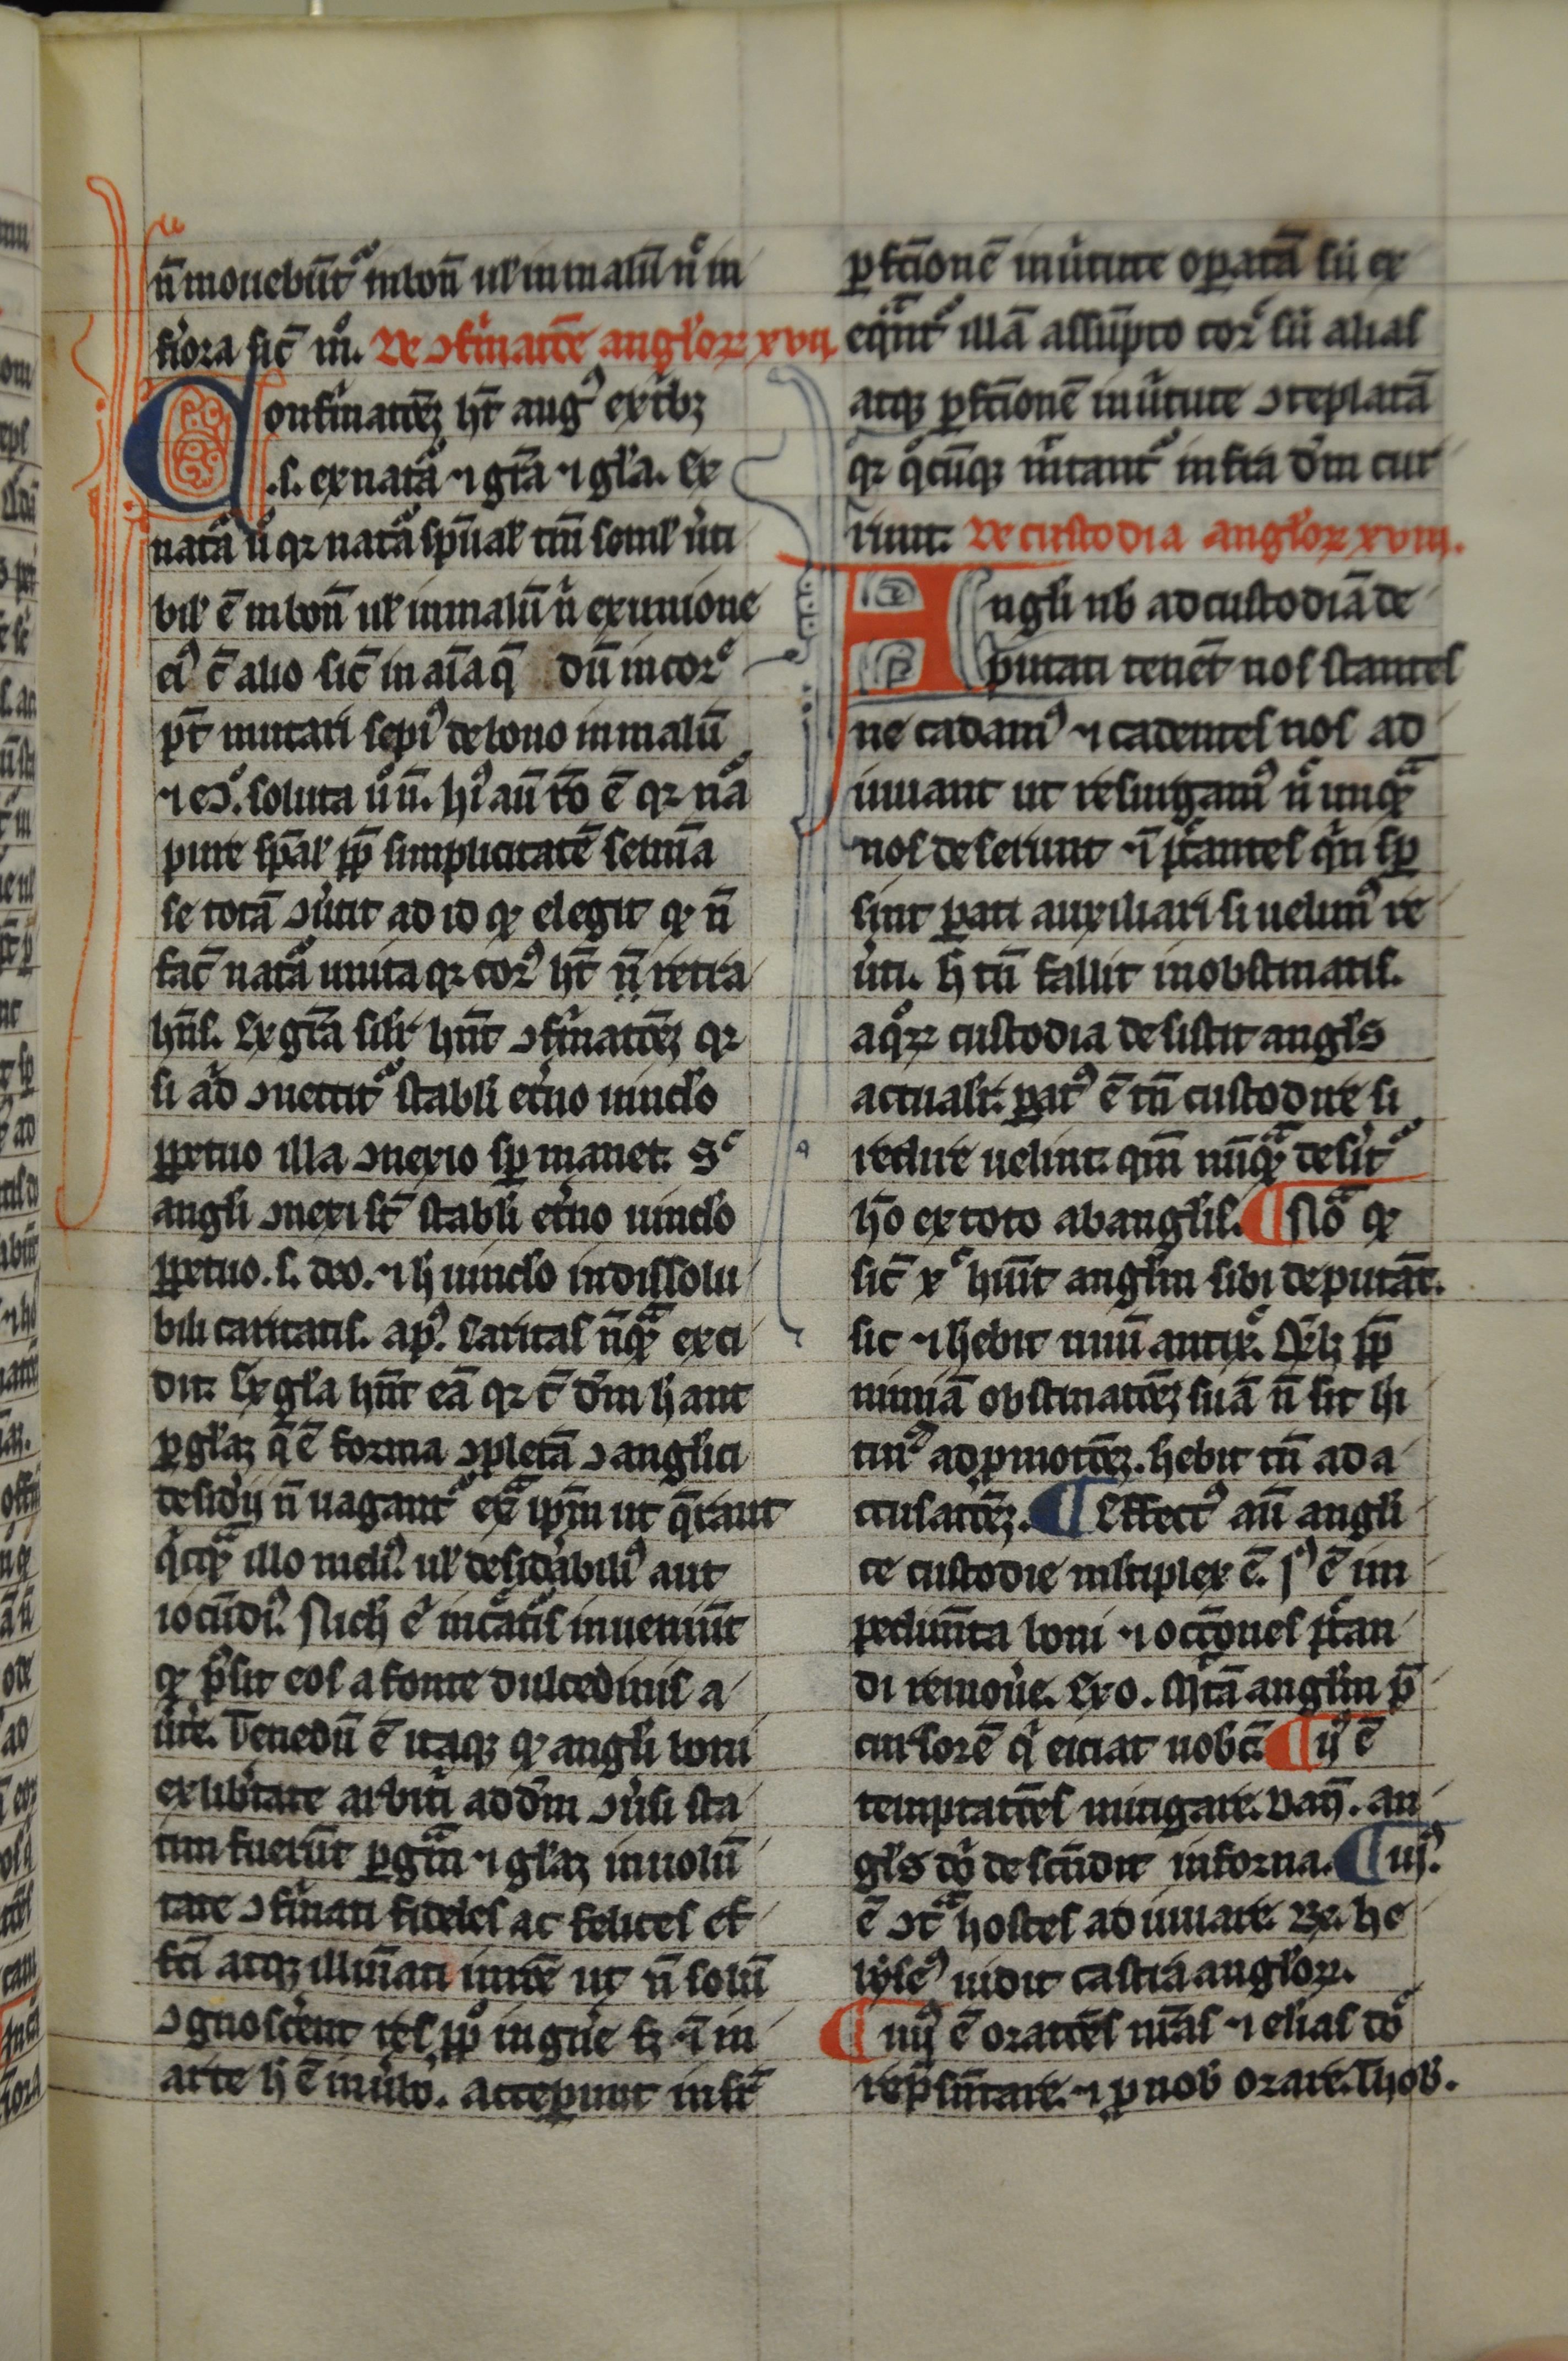 n̄ mouebūt᷑ in bon̄ ul̵ in malū n̄ in
fiora sic̄ ııı᷑. De ɔfirmatōe angl̵oꝝ xvıı.
Confirmatōeꝫ hn̄t ang᷒ ex tꝰbꝫ
.s. ex natā ⁊ grā ⁊ gl̵a. Ex
natā ů qꝛ natā spūal̵ tm̄ semel ůti
bil̵ ē in bon̄ ul̵ in malū n̄ ex unione
ei᷒ c̄ alio sic̄ in aīa q̄ dū in cor᷑
pe mutari sepi᷒ de bono in malū
⁊ eɔ᷑. soluta ů n̄. hi᷒ aū rō ē qꝛ nā
pure spāl̵ ꝓp̄ simplicitatē sem̄ia
se totā ɔůtit ad id qꝫ elegit qꝫ n̄
fac̄ natā unita qꝛ cor᷒ hn̄t n̄ retra
hn̄s. Ex grā sil̵r hn̄t ɔfirmatōeꝫ qꝛ
si ad ɔuertit᷑ stabl̵i et᷑no uincl̵o
ꝑpetuo illa ɔnexio sꝑ manet. Sꝫ
angl̵i ɔnexi sūt stabl̵i et᷑no uincl̵o
ꝑpetuo .s. deo. ⁊ h̵ uincl̵o indissolu
bili caritatis. ap᷒. Caritas nūqꝫ exci
dit. Ex gl̵a hn̄t eā qꝛ c̄ dm̄ h̵ant
ꝑ gl̵aꝫ q̄ ē forma ɔpletā ɔ anglici
desid᷑ij n̄ uagant᷑ ex͞ ip̄m ut q̄rant
q̇cqꝫ illo meli᷒ ul̵ desid᷑abili᷒ aut
iocūdi᷒. Nich̵ eī in c᷑atis inueniūt
qꝫ p̄sit eos a fonte dulcedinis a
ůte. Tenedū ē itaqꝫ qꝫ angl̵i boni
ex lib᷑tate arbit᷑i ad dm̄ ɔů̄si sta
tim fuerūt ꝑ grām ⁊ gl̵aꝫ in uolū
tate ɔfirmati fideles ac felices ef
fc̄i atqꝫ illūnati īmte ut n̄ solū
ɔgnosc᷑ent res ꝓp᷑o in gn᷑e sꝫ ⁊ in
arte h̵ ē in ůbo. acceperunt insuꝑ
ꝑfc̄ionē in ůtute oꝑatā siū ex
eq̄nt᷑ illā assūpto cor᷑ siū alias
atqꝫ ꝑfc̄ionē in ůtute ɔteplatā
qꝛ q̇cūqꝫ mittant᷑ infra dm̄ cur
runt. De custodia angl̵oꝝ xvııı.
Angl̵i nb̄ ad custodiā de
putati tenēt nos stantes
ne cadam᷒ ⁊ cadentes nos ad
iuuant ut resurgam᷒ n̄ unqꝫ
nos deserunt ⁊ p̄cantes qn̄ sꝑ
sint ꝑati auxiliari si uelim᷒ re
ůti. h̵ tn̄ fallit in obstinatis.
a q᷑oꝝ custodia desistit angl̵s
actual̵r. ꝑat᷒ ē tn̄ custodire si
redire uelint. qm̄ nūqꝫ desit᷑
hō ex toto ab angl̵is. ¶ Nō qꝫ
sic̄ x᷒ huit angl̵m sibi deputāt.
sic ⁊ h̵ebit unū antix᷒. Qui lꝫ ꝓp̄
nimiā obstinatōeꝫ suā n̄ sit hi
tur᷒ ad ꝓmotōeꝫ. hebit tn̄ ad a
ccusatōeꝫ. ¶ Effect᷒ aū angl̵i
ce custodie ml̵tiplex ē. j᷒ ē im
pedimn̄ta boni ⁊ occōnes pcan
di remoůe. Exo. Mittā angl̵m p̄
cursorē q̇ eiciat nobc̄. ¶ ij᷒ ē
temptatōes mitigare. Dan̄. an
gl̵s dn̄i descēdit in forna. ¶ iij᷒
ē ɔt̄ hostes adiuuare. Re. he
lyse᷒ uidit castra angl̵oꝝ.
¶ iiij᷒ ē oratōes nr̄as ⁊ elias dō
rep̄sn̄tare. ⁊ ꝓ nob̄ orare. Thob.